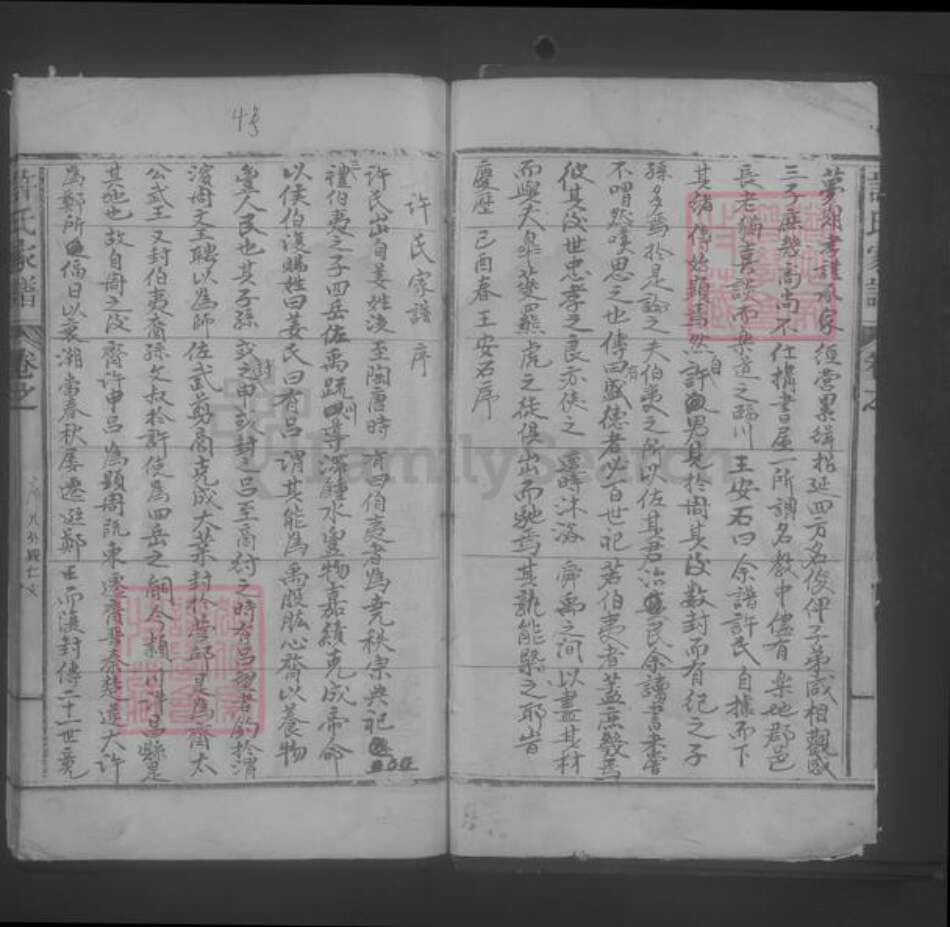 夢開書謹承家須嘗累緝招延四方名俊俾子弟咸相觀感
三子庶幾高尚不仕搆書屋一所謂名教中儘有樂地郡邑
長老猶喜談而樂道之臨川王安石曰余譜許氏自據而下
其緒傳始顯焉然許男見於周其後數封而有紀之子
孫多焉於是論之夫伯夷之所以佐其君治民余讀書未嘗
不喟然嘆思之也傳曰有盛德者必百世祀若伯夷者蓋庶幾焉
彼其後世忠孝之良亦使之遭時沐浴舜禹之間以盡其材
而與夫皋夔羆虎之徒俱出而馳焉其孰能槩之耶旹
慶歷己酉春王安石序
許氏家譜序
許氏出自姜姓後至陶唐時有曰伯夷者為堯秩宗典祀
三禮伯夷之子四岳佐禹疏川導滯鍾水豐物嘉績克成帝命
以侯伯復賜姓曰姜氏曰有呂謂其能為禹股肱心膂以養物
豐人民也其子孫或封之申或封之呂至商紂之時有呂望者釣於渭
濱周文王聘以為師佐武剪商克成大業封於營邱是為齊太
公武王又封伯夷裔孫文叔於許使為四岳之嗣今潁川許昌縣是
其地也故自周之後齊許申呂為顯周既東遷齊晉秦楚迭大許
為鄭所偪日以衰溯當春秋屢遷避鄭而復封傳二十一世竟
許氏家譜
卷之一
4号
FamilySearch